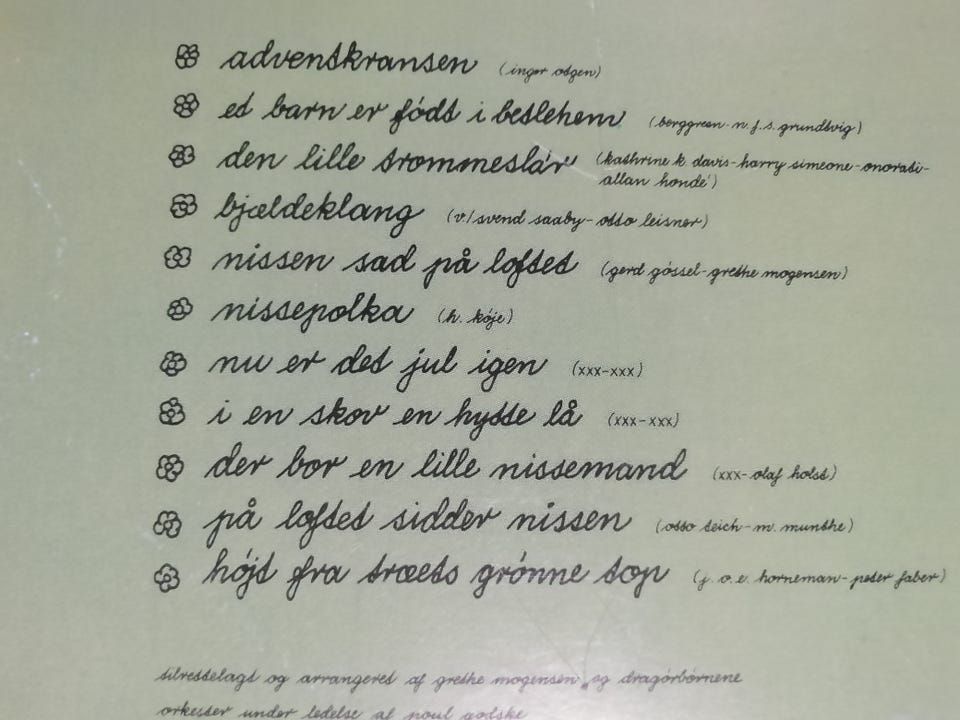 adventskransen (inger otzen)
et barn er født i betlehem (berggreen-n.f.s. grundtvig)
den lille trommeslår (kathrine k. davis-harry simeone-onorati-
allan hondé)
bjældeklang (v/svend saaby-otto leisner)
nissen sad på loftet (gerd gössel-grethe mogensen)
nissepolka (h. køje)
nu er det jul igen (xxx-xxx)
i en skov en hytte lå (xxx-xxx)
der bor en lille nissemand (xxx-olaf holst)
på loftet sidder nissen (otto teich-m. munthe)
højt fra træets grønne top (j. o. e. horneman-peter faber)
tilrettelagt og arrangeret af grethe mogensen og dragørbørnene
orkester under ledelse af poul godske